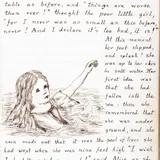 table as before, and "things are worse
than ever!" thought the poor little girl,
"for I never was as small as this before,
never! And I declare it's too bad, it is!"
At this moment
her foot slipped,
and splash! she
was up to her chin
in salt water. Her
first idea was
that she had
fallen into the
sea: then she
remembered that
she was under
ground, and she
soon made out that it was the pool of tears she
had wept when she was nine feet high. "I wish
I